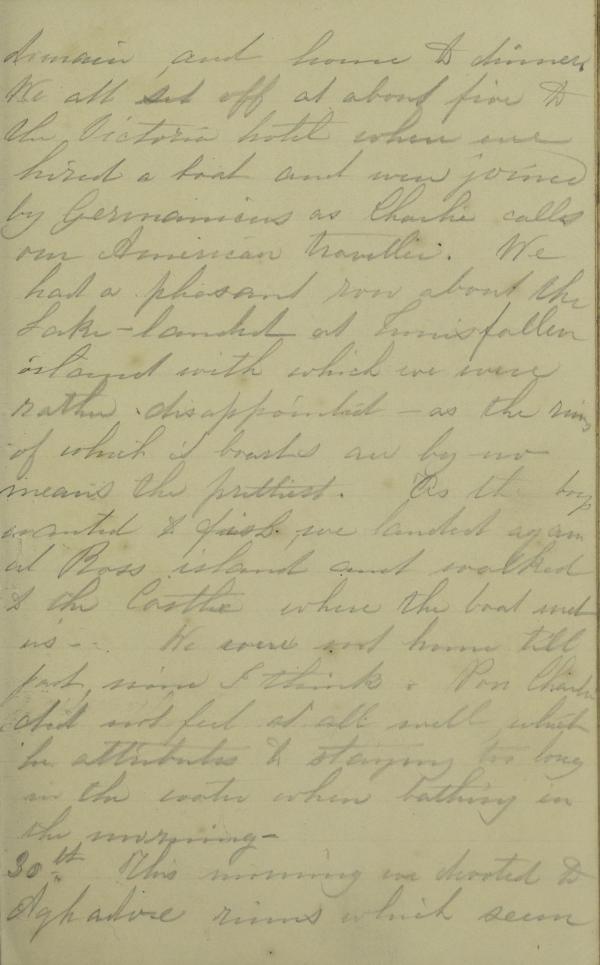 domain and home to dinner.
We all set off at about five to
the Victoria hotel where we
hired a boat and were joined
by Germanicus as Charlie calls
our American traveller. We
had a pleasant row about the
Lake - landed at Innisfallen
island with which we were
rather disappointed - as the ruins
of which it boasts are by no
means the prettiest. As the boys
wanted to fish we landed again
at Ross island and walked
to the Castle where the boat met
us - We were not home till
past nine I think. Poor Charlie
did not feel at all well, which
he attributes to staying too long
in the water when bathing in
the morning -
30th This morning we devoted to
Aghadoe ruins which seem